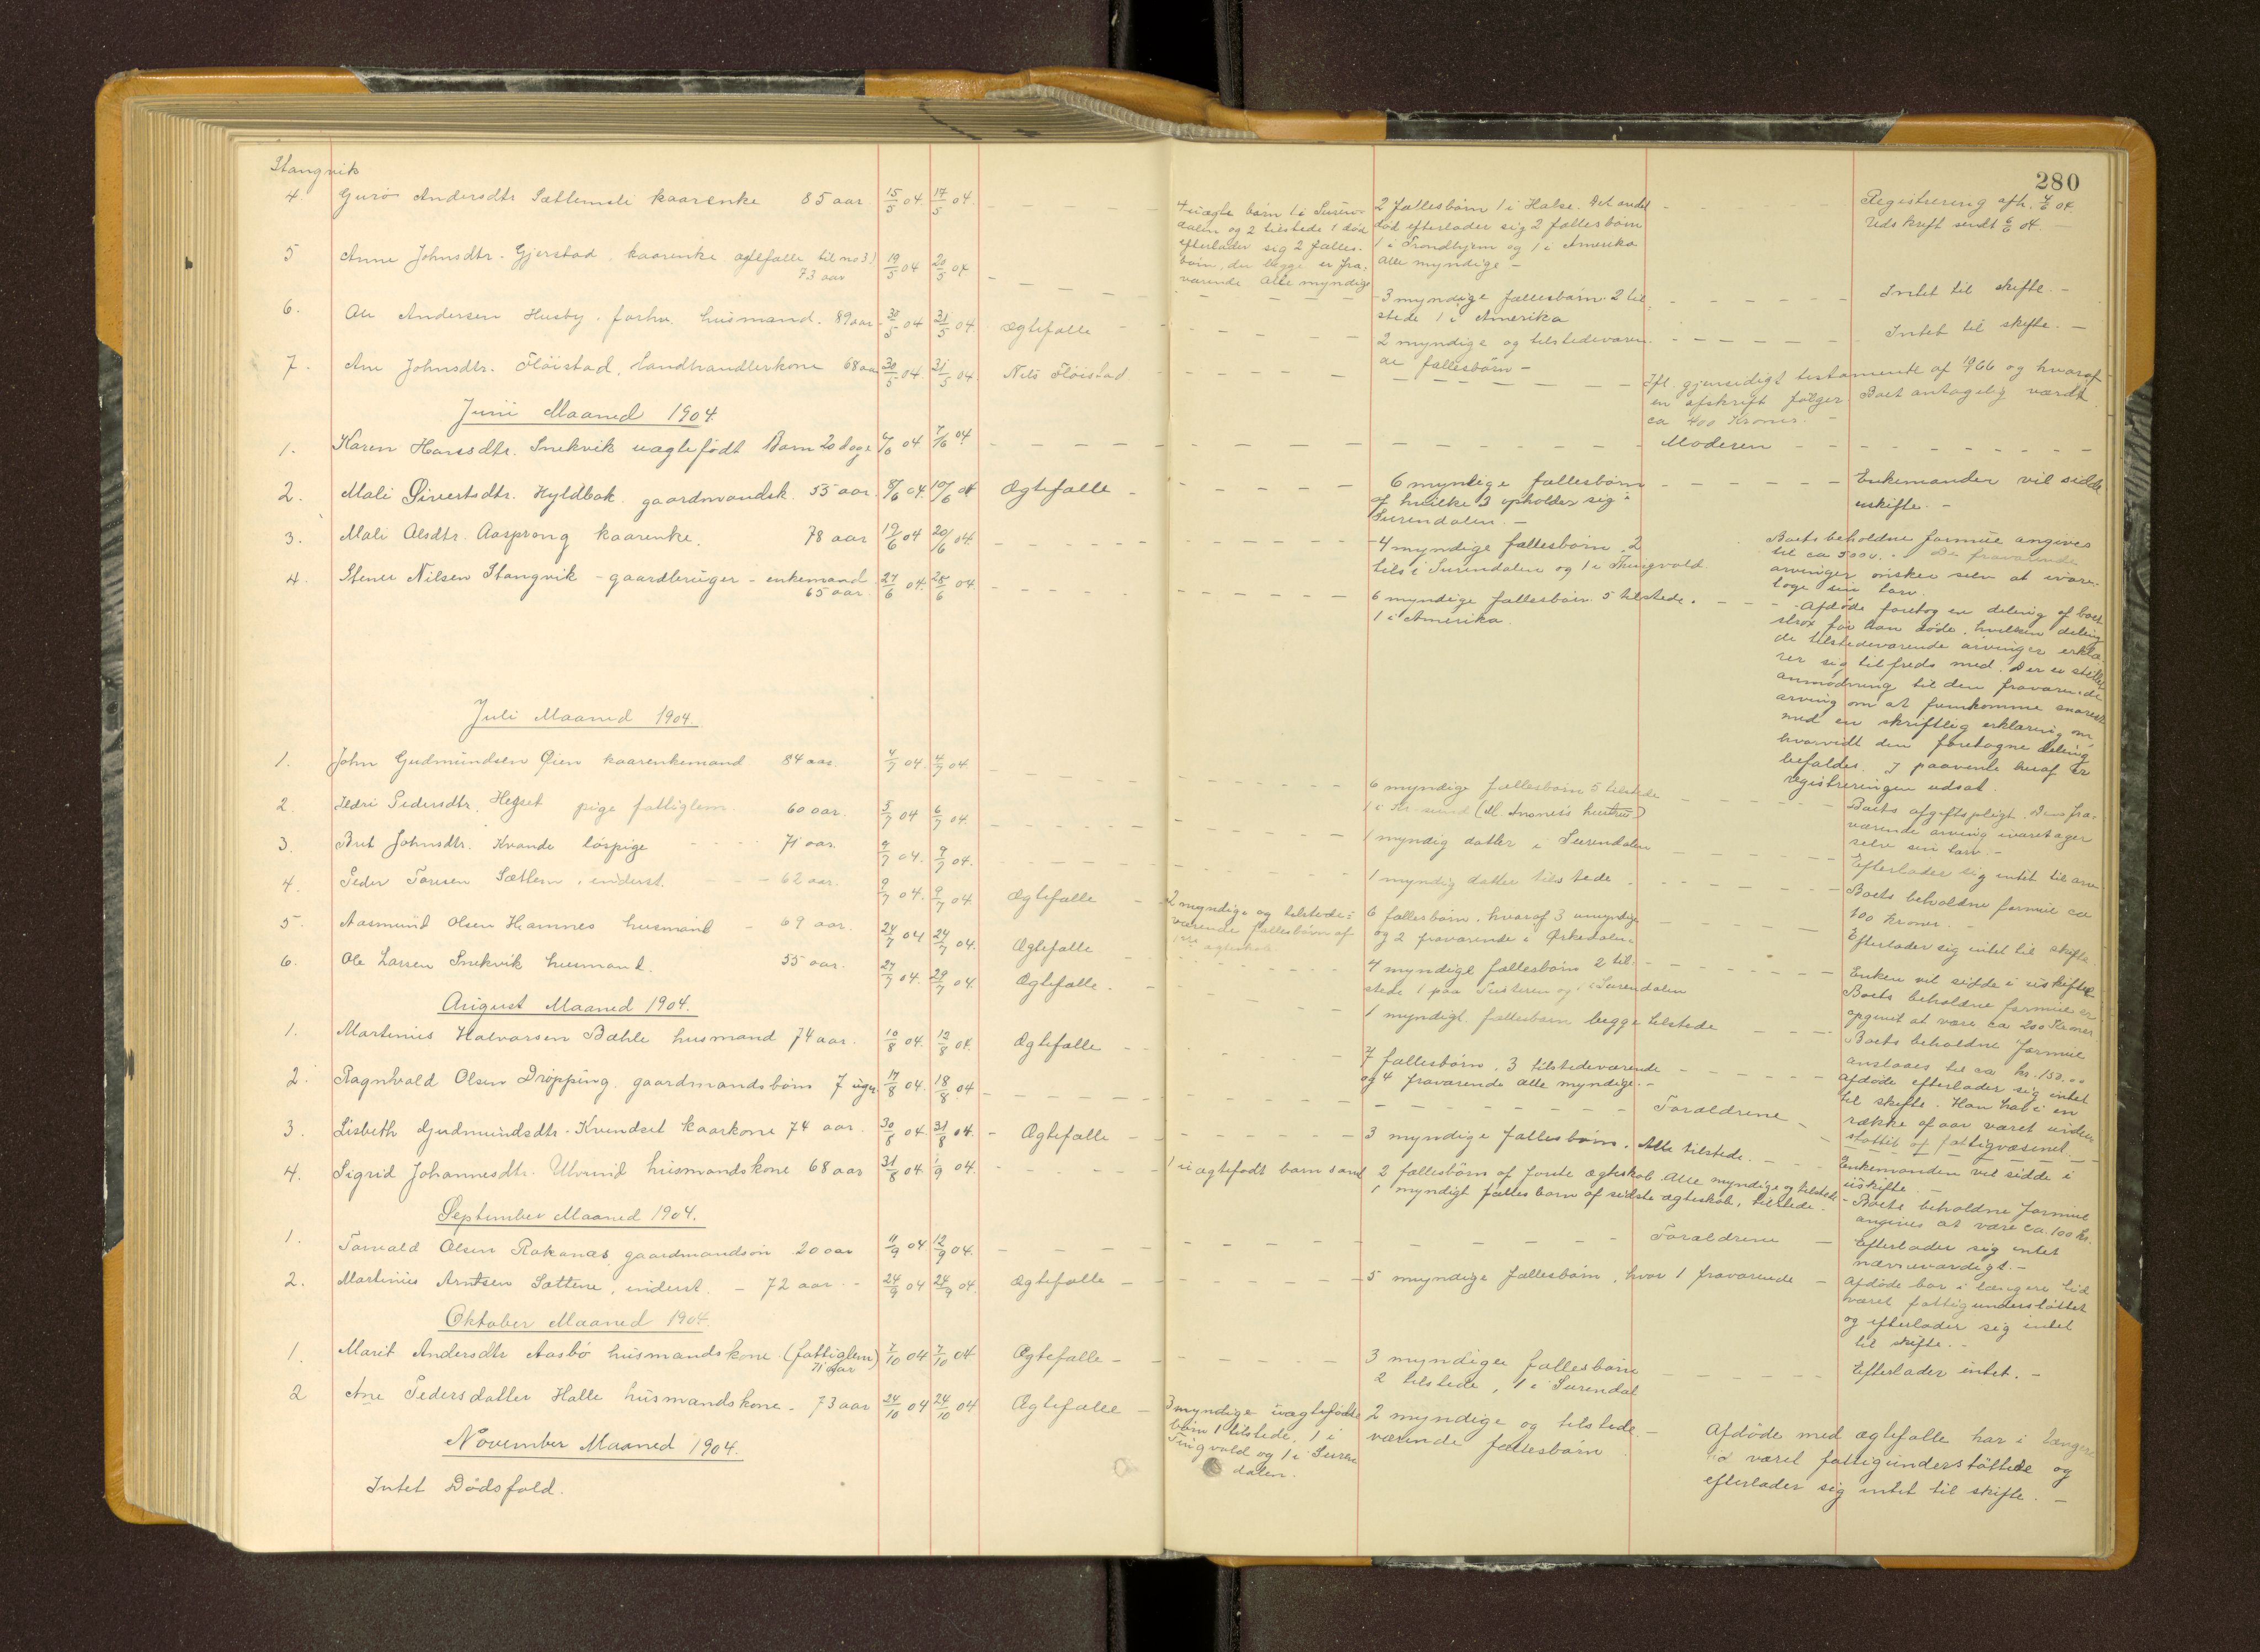 Stangvik
280
4. Guro Andersdtr Sætlemsli kaarenke 85 aar 15/5 04 17/5 04.
4 uægte børn 1 i Suren-
dalen og 2 tilstede 1 død
efterlader sig 2 fælles-
børn, der begge er fra-
værende Alle myndige
2 fællesbørn 1 i Halse. Det andet
død efterlader sig 2 fællesbørn
1 i Trondhjem og 1 i Amerika
alle myndige -
Registrering afh. 04.
Udskrift sendt 04.
5 Anne Johnsdtr. Gjerstad kaarenke ægtefælle til no 3)
73 aar 19/5 04 20/5 04
3 myndige fællesbørn 2 til
stede 1 i Amerika
Intet til skifte. -
6. Ole Andersen Husby. forhv. husmand. 89 aar 30/5 04 31/5 04 ægtefælle
2 myndige og tilstedeværen-
de fællesbørn -
Intet til skifte. -
7. Ane Johnsdtr. Fløistad, landhandlerkone 68 aar 30/5 04 31/5 04 Nils Fløistad
Ifl. gjensidigt testamente af og hvoraf
en afskrift følger. Boet antagelig værdt
ca 400 Kroner. -
Juni Maaned 1904.
1. Karen Hansdtr. Snekvik uægtefødt Barn 20 dage 6/6 04 7/6 04
Moderen
2. Mali Sivertsdtr. Hyldbak. gaardmandsk. 55 aar. 8/6 04. 10/6 04 Ægtefælle
6 myndige fællesbørn
af hvilke 3 opholder sig i
Surendalen. -
Enkemanden vil sidde
uskifte. -
3. Mali Olsdtr. Aasprong kaarenke. 78 aar 19/6 04 20/6 04.
4 myndige fællesbørn 2
tils i Surendalen og 1 i Thingvold
Boets beholdne formue angives
til ca 500 v. De fraværende
arvinger ønsker selv at ivare-
tage sin tarv.
4. Stener Nilsen Stangvik - gaardbruger - enkemand
65 aar 27/6 04. 28/6 04
6 myndige fællesbørn 5 tilstede.
1 i Amerika.
- Afdøde foretog en deling af boet
strax før han døde, hvilken deling
de tilstedeværende arvinger erklæ-
rer sig tilfreds med. Der er stillet
anmodning til den fraværende
arving om at fremkomme snarest
med en skriftlig erklæring om,
hvorvidt den foretagne deling
befaldes. I paavente heraf er
registreringen udsat.
Juli Maaned 1904.
1. John Gudmundsen Øien kaarenkemand 84 aar. 4/7 04 4/7 04.
6 myndige fællesbørn 5 tilstede
1 i Kr.sund
Boets afgiftspligt. Den fra-
værende arving ivaretager
selv sin tarv. -
2. Ildri Pedersdtr. Hegset pige fattiglem 60 aar. 5/7 04 6/7 04.
1 myndig datter i Surendalen
Efterlader sig intet til arv
3. Brit Johnsdtr. Kvande løspige 71 aar. 9/7 04. 9/7 04.
1 myndig datter tilstede
Boets beholdne formue ca
100 kroner. -
4. Peder Toresen Sætlem, inderst. 62 aar. 9/7 04. 9/7 04 Ægtefælle
2 myndige og tilstede-
værende fællesbørn af
1ste ægteskab.
6 fællesbørn. hvoraf 3 umyndige
og 2 fraværende i Ørkedalen.
Efterlader sig intet til skifte.
5. Aasmund Olsen Hamnes husmand - 69 aar. 24/7 04 24/7 04. Ægtefælle
4 myndige fællesbørn 2 til
stede 1 paa Tusteren og 1 i Surendalen
Enken vil sidde i uskiftet
Boets beholdne formue er
opgivet at være ca 200 Kroner
6. Ole Larsen Snekvik husmand. 55 aar. 27/7 04. 29/7 04 Ægtefælle.
1 myndigt fællesbarn begge tilstede
Boets beholdne formue
anslaaes til ca kr. 150.00
August Maaned 1904.
1. Martinus Halvorsen Bæhle husmand 74 aar. 10/8 04. 12/8 04. Ægtefælle
7 fællesbørn. 3 tilstedeværende
og 4 fraværende alle myndige. -
Afdøde efterlader sig intet
til skifte. Han har i en
række af aar været under
støttet af fattigvæsenet
2. Ragnhvald Olsen Drøpping. gaardmandsbarn 7 uger 17/8 04. 18/8 04
Forældrene
3. Lisbeth Gudmundsdtr. Kvendset kaarkone 74 aar. 30/8 04. 31/8 04. - Ægtefælle
3 myndige fællesbørn. Alle tilstede.
Enkemanden vil sidde i
uskifte. -
4. Sigrid Johannesdtr. Ulvund husmandskone 68 aar 31/8 04. 1/9 04.
1 uægtefødt barn samt 2 fællesbørn af første ægteskab. Alle myndige og tilstede
1 myndigt fællesbarn af sidste ægteskab, tilstede.
- Boets beholdne formue
angives at være ca. 100 kr.
September Maaned 1904.
1. Torvald Olsen Rakanæs gaardmandsøn 20 aar 11/9 04 12/9 04.
Forældrene
Efterlader sig intet
nævneværdigt. -
2. Martinus Arntsen Sættene, inderst. - 72 aar 24/9 04 24/9 04. Ægtefælle
5 myndige fællesbørn, hvor 1 fraværende
Afdøde har i længere tid
været fattigunderstøttet
og efterlader sig intet
til skifte. -
Oktober Maaned 1904.
1. Marit Andersdtr Aasbø husmandskone (fattiglem)
71 aar 7/10 04 7/10 04 Ægtefælle
3 myndige fællesbørn
2 tilstede, 1 i Surendal
Efterlader intet. -
2 Ane Pedersdatter Halle husmandskone. 73 aar 24/10 04 24/10 04 Ægtefælle
3 myndige uægtefødte
børn 1 tilstede, 1 i
Tingvold og 1 i Suren
dalen.
2 myndige og tilstede-
værende fællesbørn
Afdøde med ægtefælle har i længere
tid været fattigunderstøttede og
efterlader sig intet til skifte. -
November Maaned 1904.
Intet Dødsfald.